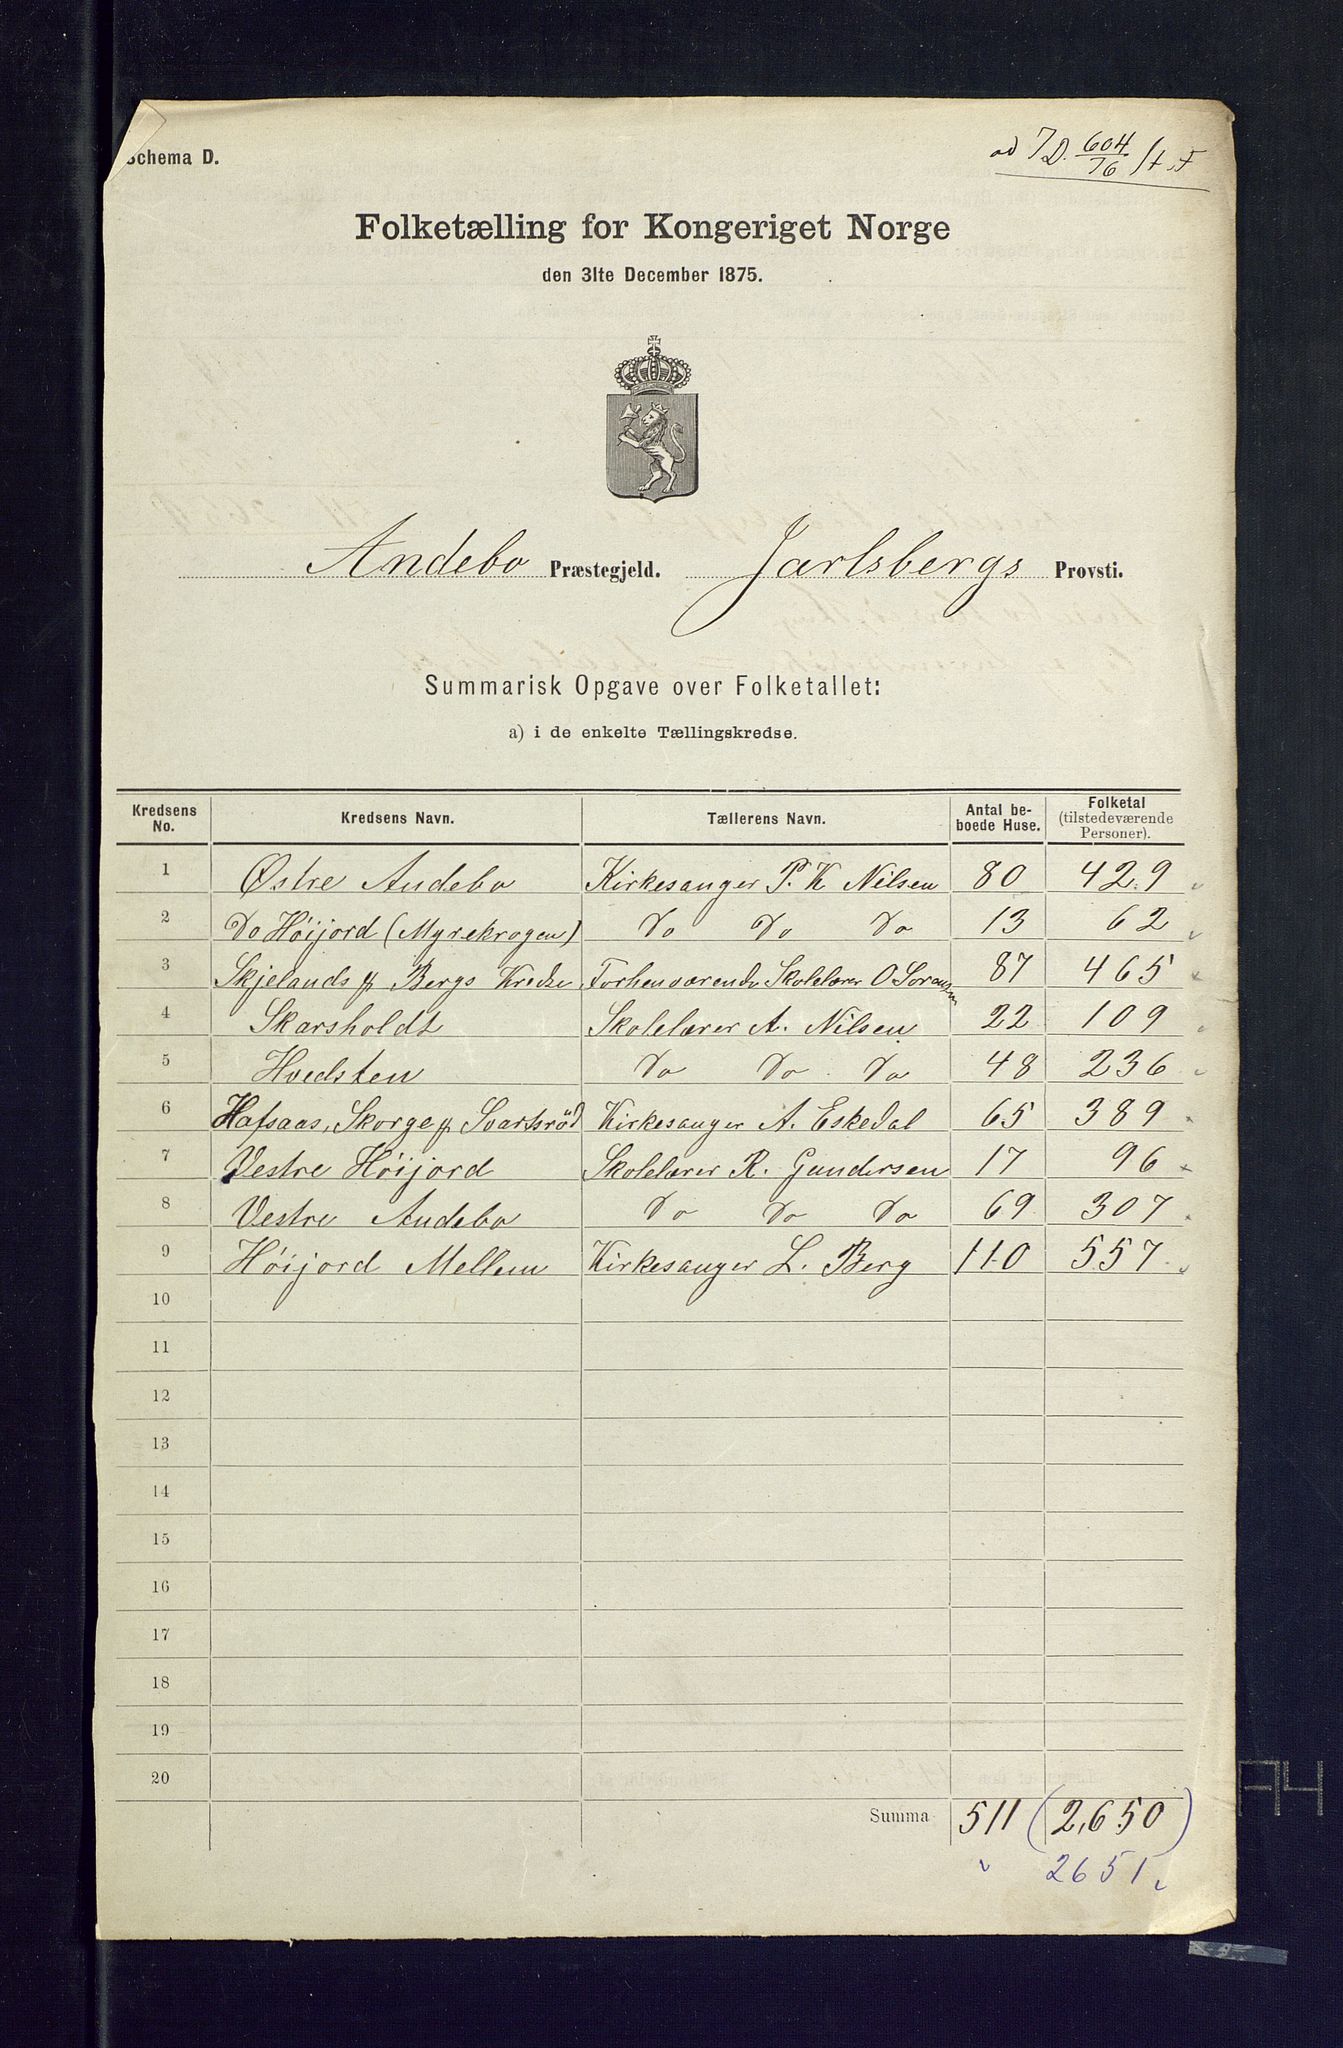 Schema D.
ad J D. 604/76 St. F
Folketælling for Kongeriget Norge
den 31te December 1875.
Andebo Præstegjeld. Jarlsbergs Provsti.
Summarisk Opgave over Folketallet:
a) i de enkelte Tællingskredse.
Kredsens No. Kredsens Navn. Tællerens Navn. Antal be-boede Huse. Folketal (tilstedeværende Personer).
1 Østre Andebo Kirkesanger P. K Nilsen 80 429
2 Do Høijord (Myrekrogen) Do Do Do 13 62
3 Skjelands & Bergs Kredse Forhenværende Skolelærer O Sørensen 87 465
4 Skarsholdt Skolelærer A. Nilsen 22 109
5 Hvedsten Do Do Do 48 236
6 Hafsaas, Skorge & Svartsröd Kirkesanger A. Eskedal 65 389
7 Vestre Høijord Skolelærer R. Gundersen 17 96
8 Vestre Andebo Do Do Do 69 307
9 Høijord Mellem Kirkesanger L. Berg 110 557
10
11
12
13
14
15
16
17
18
19
20
Summa 511 (2,650)
2651